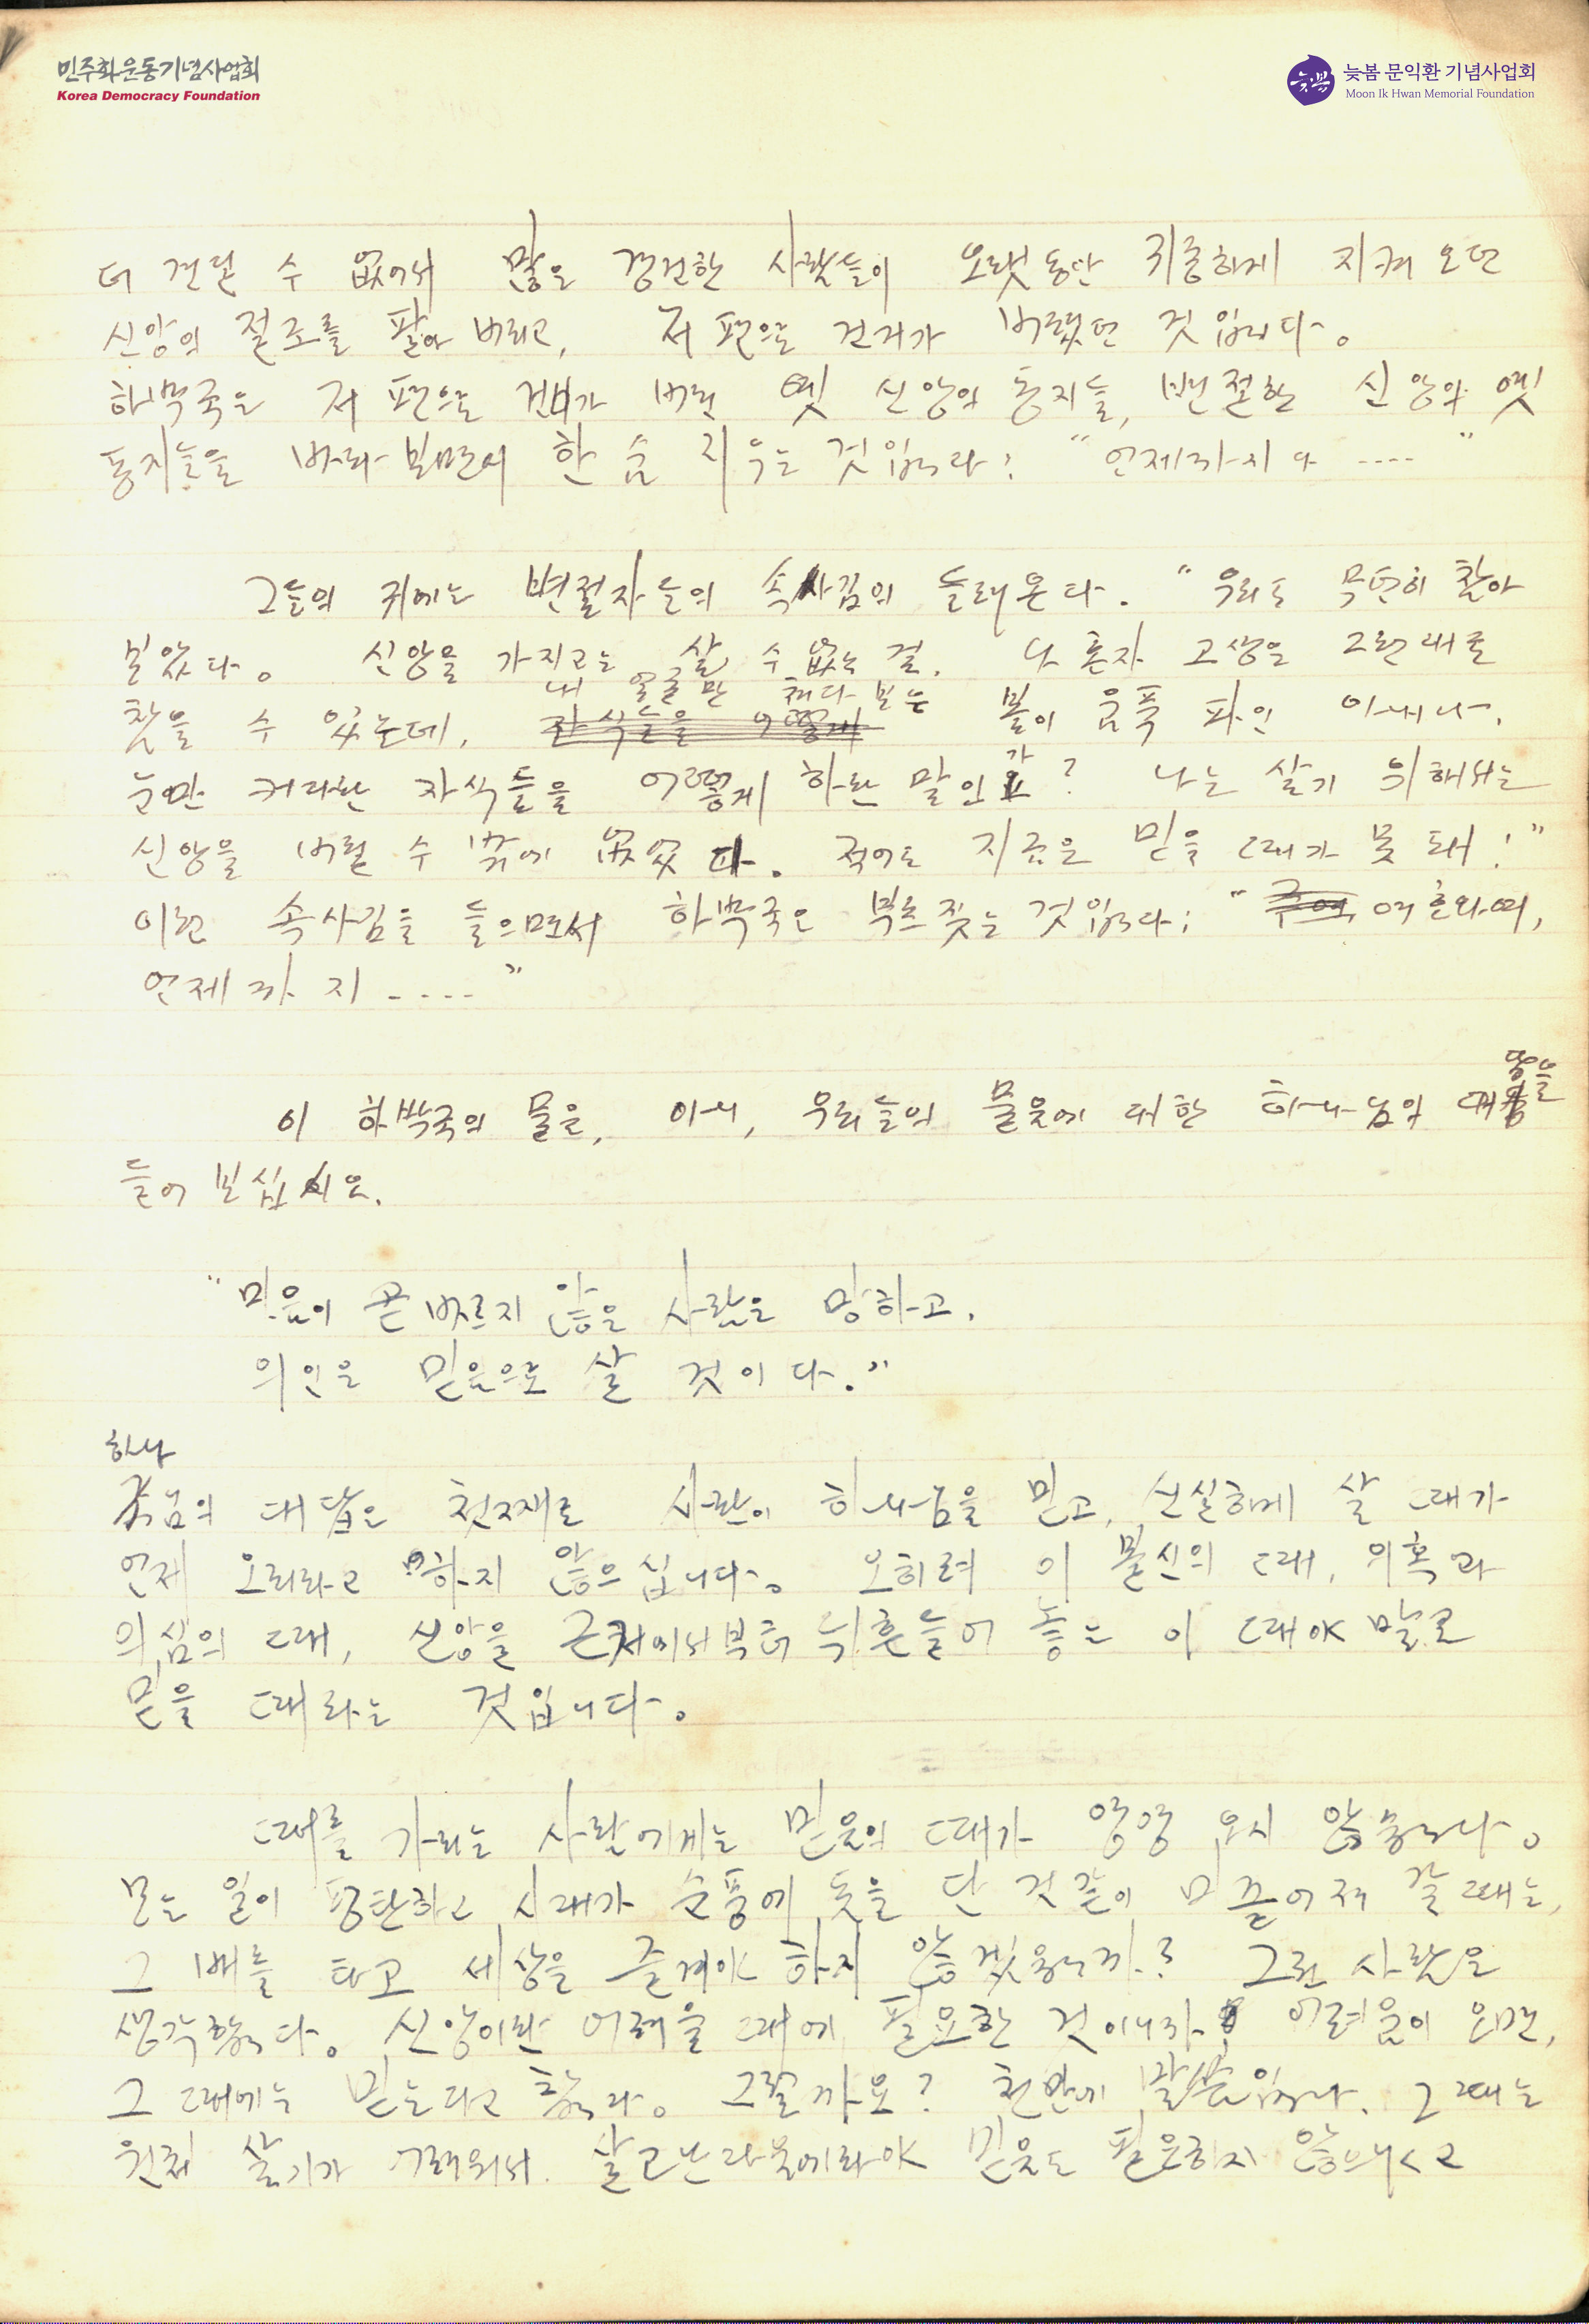 민주화운동기념사업회
Korea Democracy Foundation
늦봄 문익환 기념사업회
Moon Ik Hwan Memorial Foundation
더 견딜 수 없어서 많은 경건한 사람들이 오랫동안 귀중하게 지켜 오던
신앙의 절조를 팔아 버리고, 저편으로 건너가 버렸던 것입니다.
하박국은 저 편으로 건너가 버린 옛 신앙의 동지들, 변절한 신앙의 옛
동지들을 바라보면서 한숨 지우는 것입니다: "언제까지나 ----"
그들의 귀에는 변절자들의 속사김이 들려온다. "우리도 무던히 참아
보았다. 신앙을 가지고는 살 수 없는 걸. 나 혼자 고생은 그런대로
내 얼굴만 쳐다 보는
참을 수 있는데, 자식들을 어떻게 볼이 움푹 파인 아내나,
눈만 커다란 자식들을 어떻게 하란 말인가? 나는 살기 위해서는
신앙을 버릴 수 밖에 없었다. 적어도 지금은 믿을 때가 못 돼!"
이런 속사김을 들으면서 하박국은 부르짖는 것입니다: "주여, 여호와여,
언제까지 ----"
이 하박국의 물음, 아니, 우리들의 물음에 대한 하나님의 대답을
들어 보십시오.
"믿음이 곧바르지 않은 사람은 망하고,
의인은 믿음으로 살 것이다."
하나
님의 대답은 첫째로 사람이 하나님을 믿고, 신실하게 살 때가
언제 오리라고 하지 않으십니다. 오히려 이 불신의 때, 의혹과
의심의 때, 신앙을 근저에서부터 뒤흔들어 놓는 이 때야 말로
믿을 때라는 것입니다.
때를 가리는 사람에게는 믿음의 때가 영영 오지 않습니다.
모든 일이 평탄하고 시대가 순풍에 돛을 단 것 같이 미끌어져 갈 때는,
그 배를 타고 세상을 즐겨야 하지 않겠습니까? 그런 사람은
생각합니다. 신앙이란 어려울 때에 필요한 것이니까 어려움이 오면,
그 때에는 믿는다고 합니다. 그럴까요? 천만에 말씀입니다. 그 때는
원체 살기가 어려워서 살고난 다음에라야 믿음도 필요하지 않으냐고